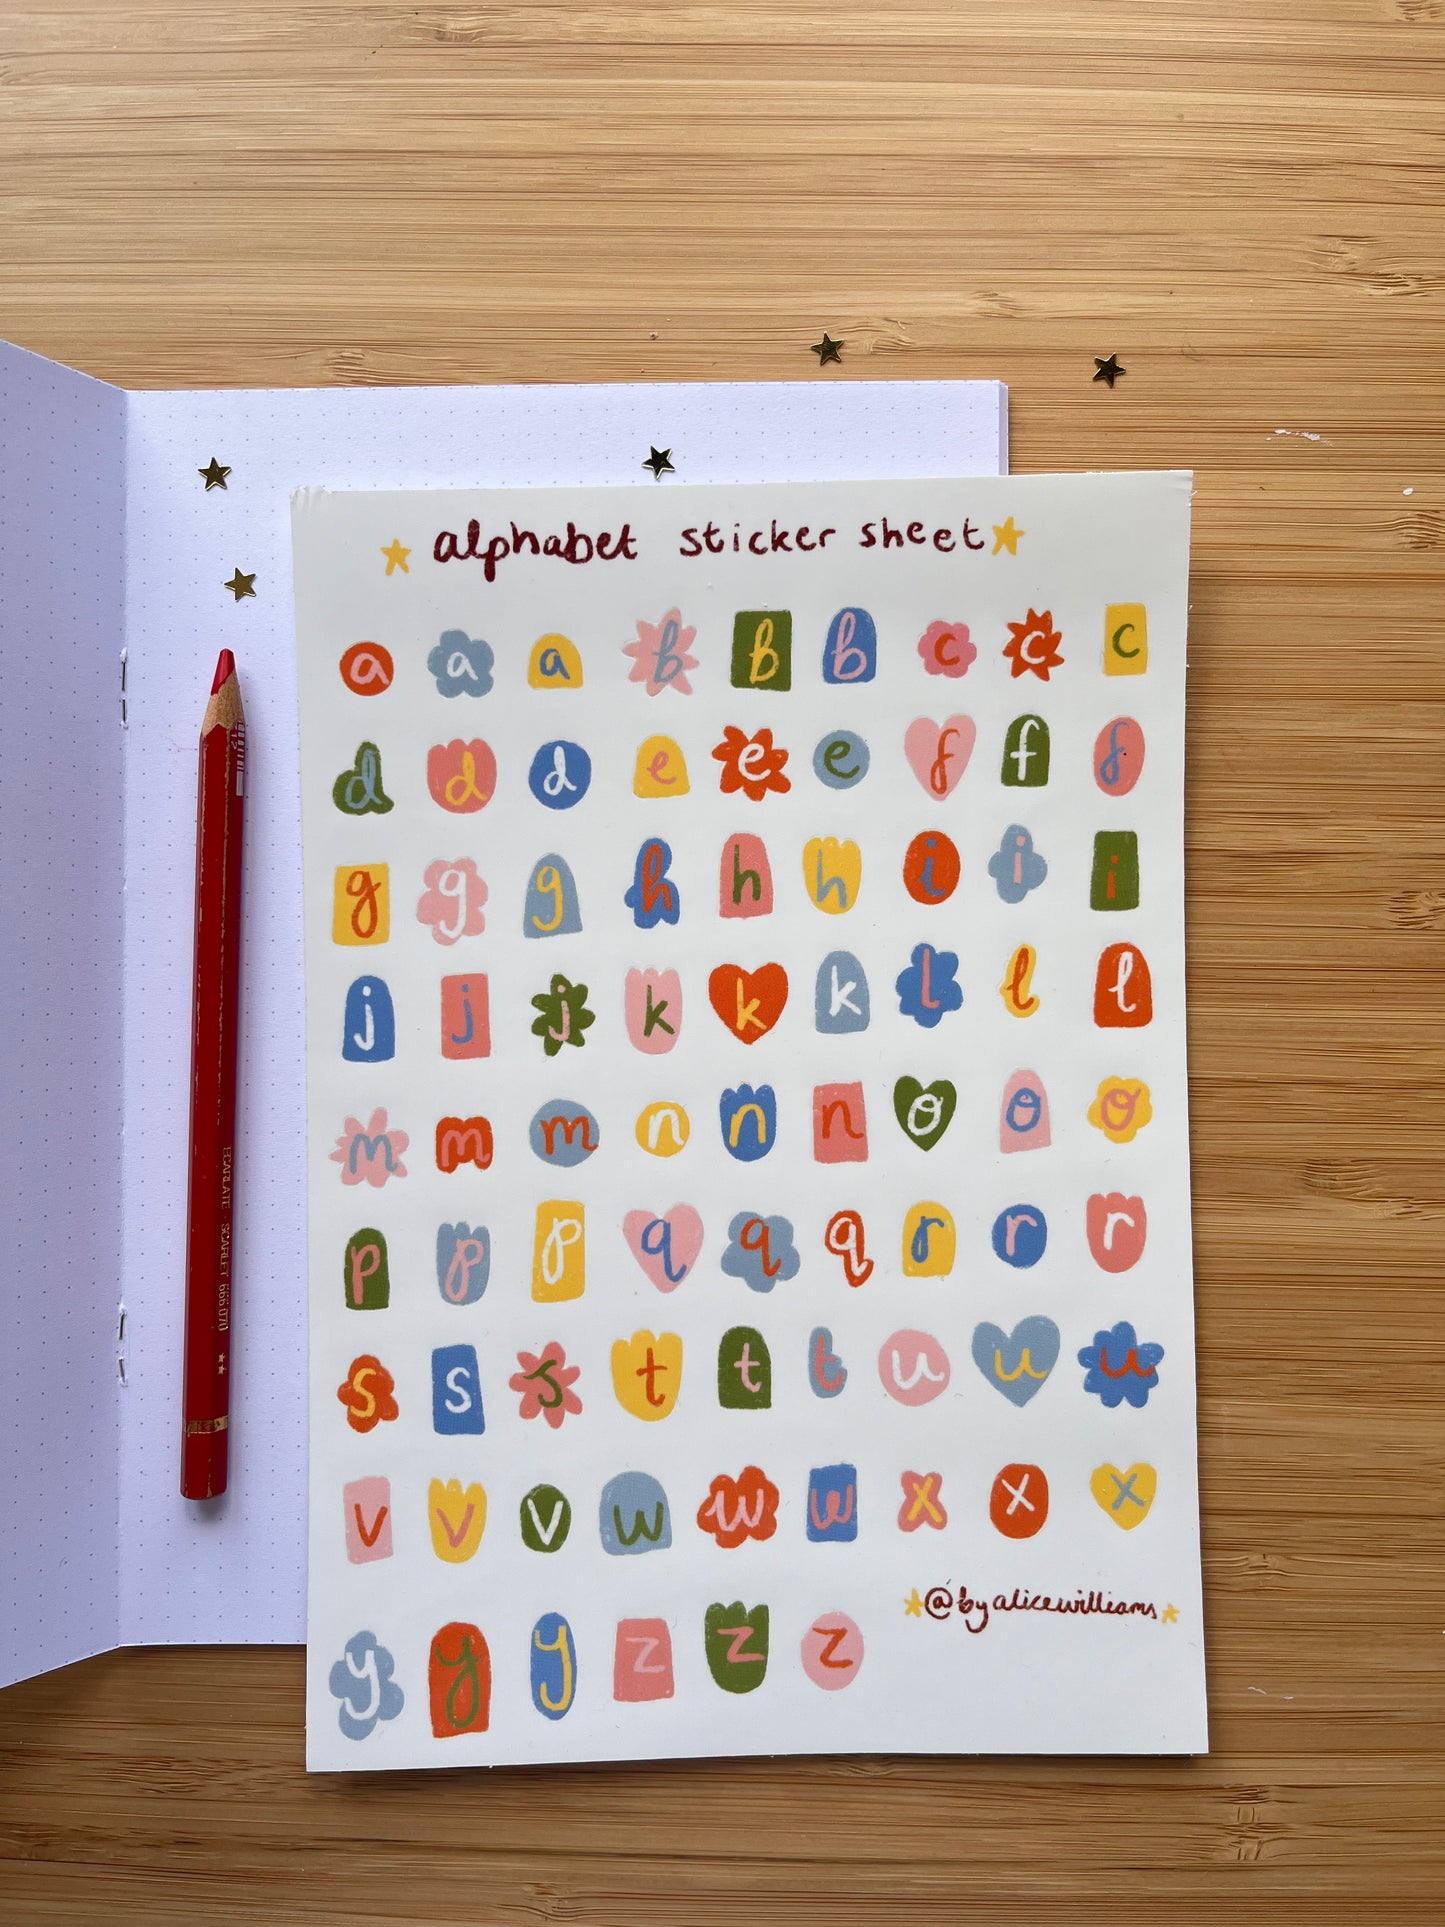 alphabet sticker sheet
a a a b b b c c c
d d d e e e f f f
g g g h h h i i i
j j j k k k l l l
m m m n n n o o o
p p p q q q r r r
s s s t t t u u u
v v v w w w x x x
@byalicewilliams
y y y z z z
SCARLET 666 070